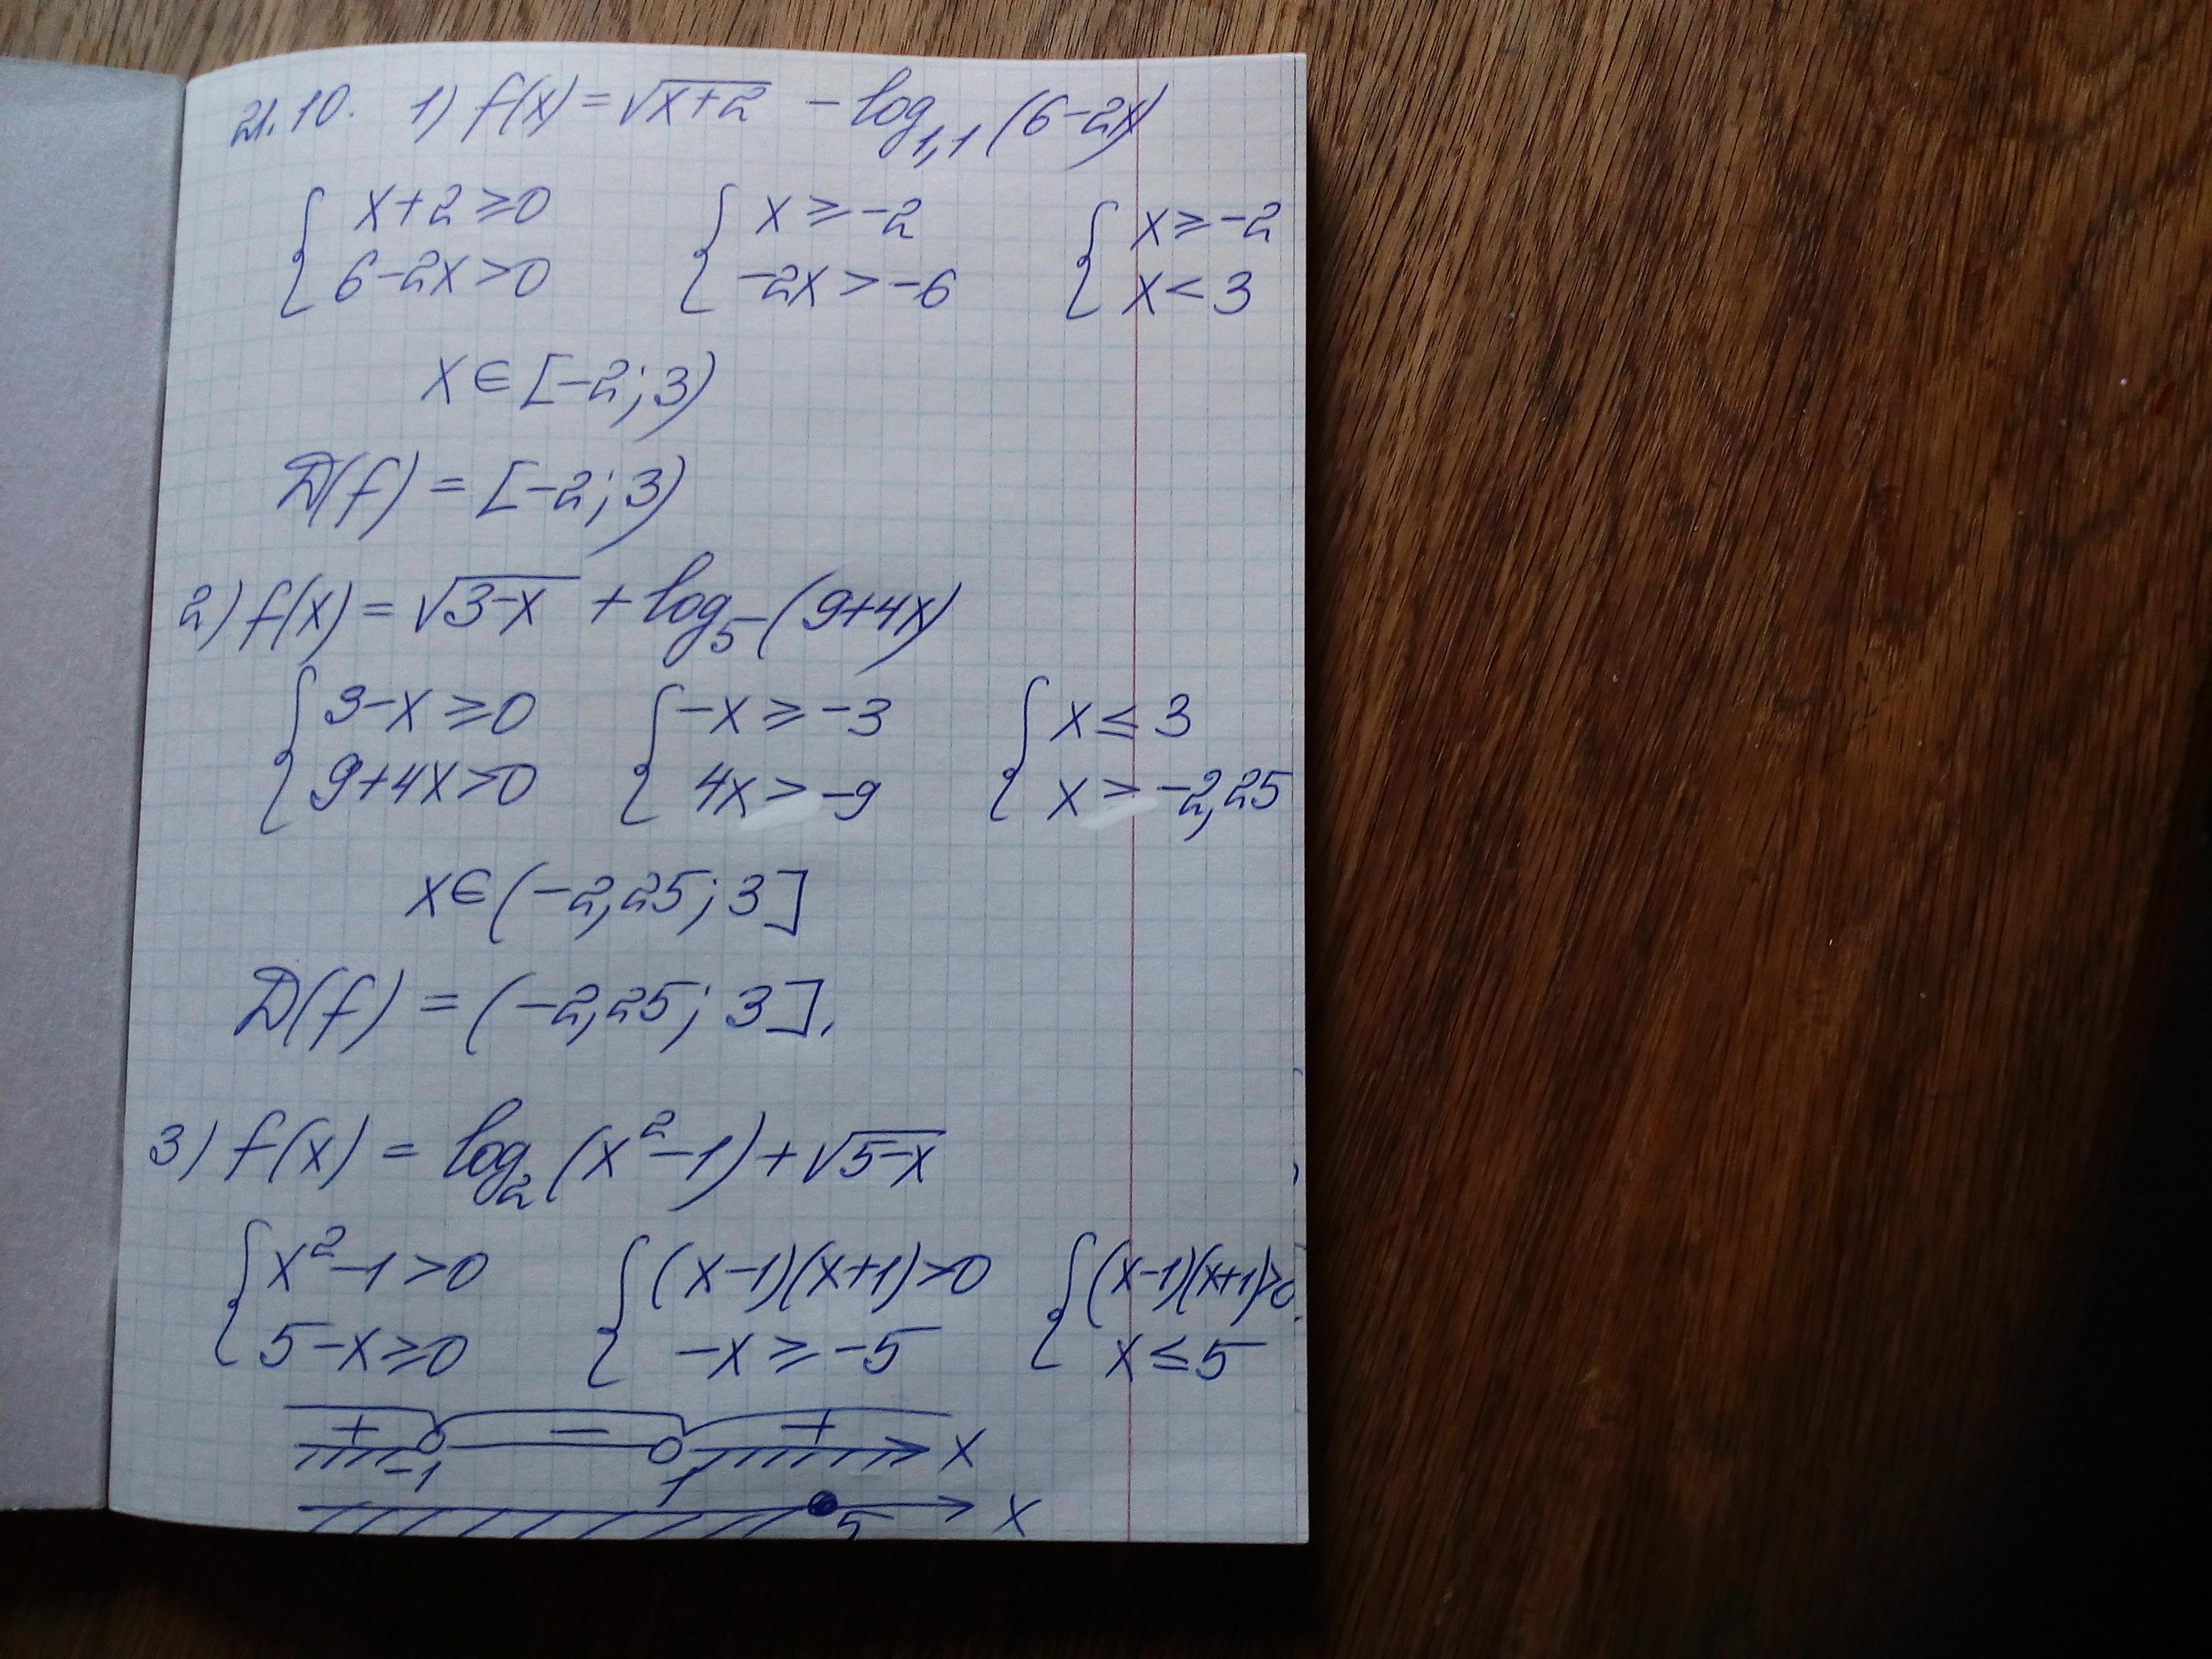 21.10. 1) f(x) = √(x+2) - log₁,₁ (6-2x)
{ x+2 ≥ 0 { x ≥ -2 { x ≥ -2
{ 6-2x > 0 { -2x > -6 { x < 3
x ∈ [-2; 3)
D(f) = [-2; 3)
2) f(x) = √(3-x) + log₅ (9+4x)
{ 3-x ≥ 0 { -x ≥ -3 { x ≤ 3
{ 9+4x > 0 { 4x > -9 { x > -2,25
x ∈ (-2,25; 3]
D(f) = (-2,25; 3].
3) f(x) = log₂ (x²-1) + √(5-x)
{ x²-1 > 0 { (x-1)(x+1) > 0 { (x-1)(x+1) > 0
{ 5-x ≥ 0 { -x ≥ -5 { x ≤ 5
+ - + x
-1 1
5 x